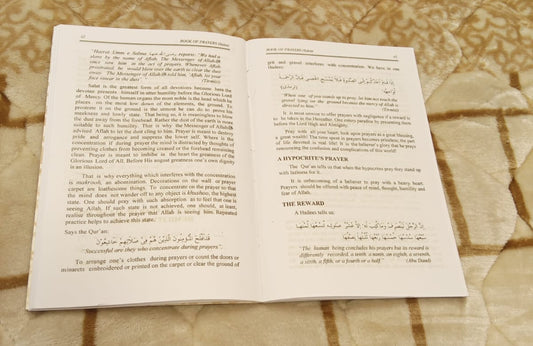 62
BOOK OF PRAYERS (Salat)
"Hazrat Umm e Salma رضی اللہ عنہا reports: "We had a
slave by the name of Aflah. The Messenger of Allah ﷺ
once saw him in the act of prayers. Whenever Aflah
prostrated he would blow over the earth to clear the dust
away. The Messenger of Allah ﷺ told him, 'Aflah, let your
face smear in the dust'".
(Tirmizi)
Salat is the greatest form of all devotions because here the
devotee presents himself in utter humility before the Glorious Lord
of Mercy. Of the human organs the most noble is the head which he
places on the most low down of the elements, the ground. To
prostrate it on the ground is the utmost he can do to prove his
meekness and lowly state. That being so, it is meaningless to blow
the dust away from the forehead. Rather the dust of the earth is more
suitable to such humility. That is why the Messenger of Allah ﷺ
advised Aflah to let the dust cling to him. Prayer is meant to destroy
pride and arrogance and suppress the lower self. When
concentration if during prayer the mind is distracted by thoughts of
preventing clothes from becoming creased or the forehead remaining
clean. Prayer is meant to imbibe in the heart the greatness of the
Glorious Lord of All. Before His august greatness one's own dignity
is an illusion.
That is why everything which interferes with the concentration
is makrooh, an abomination. Decorations on the wall or prayer
carpet are loathesome things. To concentrate on the prayer so that
the mind does not wander off to any object is khushoo, the highest
state. One should pray with such absorption as to feel that one is
seeing Allah. If such state is not achieved, one should, at least,
realise throughout the prayer that Allah is seeing him. Repeated
practice helps to achieve this state.
Says the Qur'an:
قَدْ اَفْلَحَ الْمُؤْمِنُوْنَ الَّذِيْنَ هُمْ فِىْ صَلَاتِهِمْ خَاشِعُوْنَ
"Successful are they who concentrate during prayers".
To arrange one's clothes during prayers or count the doors or
minarets embroidered or printed on the carpet or clear the ground of
BOOK OF PRAYERS (Salat)
63
grit and gravel interferes with concentration. We have in one
Hadees:
"When one of you stands up to pray, let him not touch the
gravel lying on the ground because the mercy of Allah is
directed to him."
(Tirmizi)
It is most unwise to offer prayers with negligence if a reward is
to be taken in the Hereafter. One earns paradise by presenting them
before the Lord High and Almighty.
Pray with all your heart, look upon prayers as a great blessing,
a great wealth! The time spent in prayers becomes priceless, the part
of life devoted is real life! It is the believer's glory that he prays
renouncing the confusion and complications of this world!
A HYPOCRITE'S PRAYER
The Qur'an tells us that when the hypocrites pray they stand up
with laziness for it.
It is unbecoming of a believer to pray with a heavy heart.
Prayers should be offered with peace of mind, thought, humility and
fear of Allah.
THE REWARD
A Hadees tells us:
"The human being concludes his prayers but its reward is
differently recorded, a tenth, a ninth, an eighth, a seventh,
a sixth, a fifth, or a fourth or a half."
(Abu Daud)